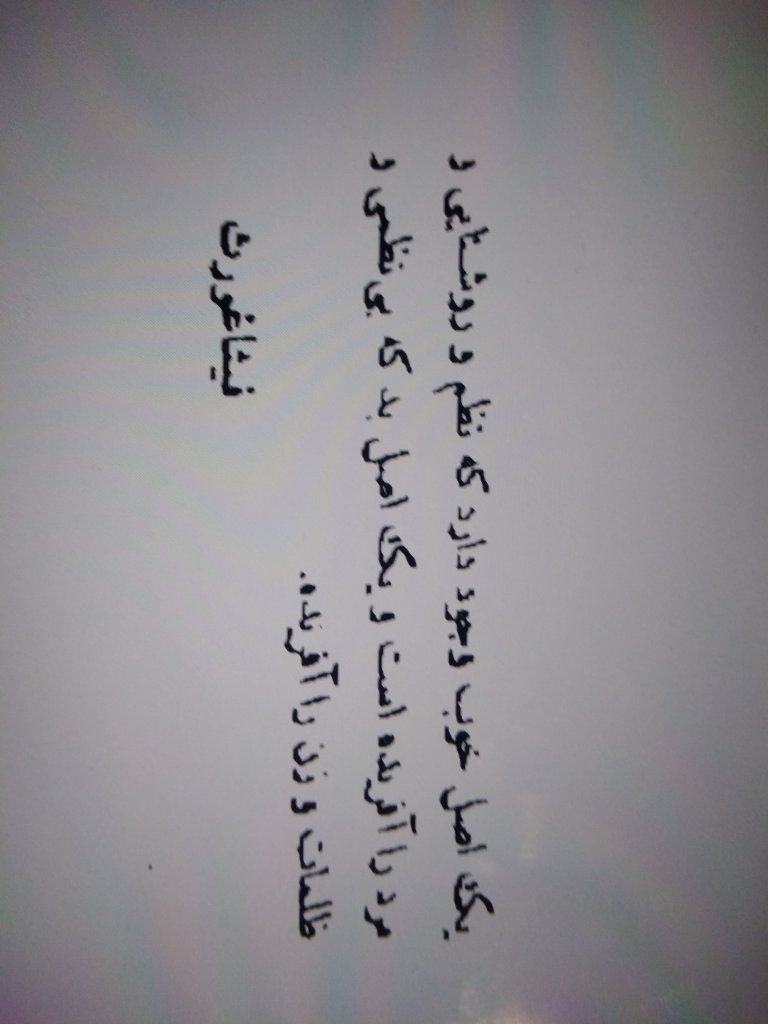 یک اصل خوب وجود دارد که نظم و روشنایی و
مرد را آفریده است و یک اصل بد که بی نظمی و
ظلمات و زن را آفریده.
فیثاغورث